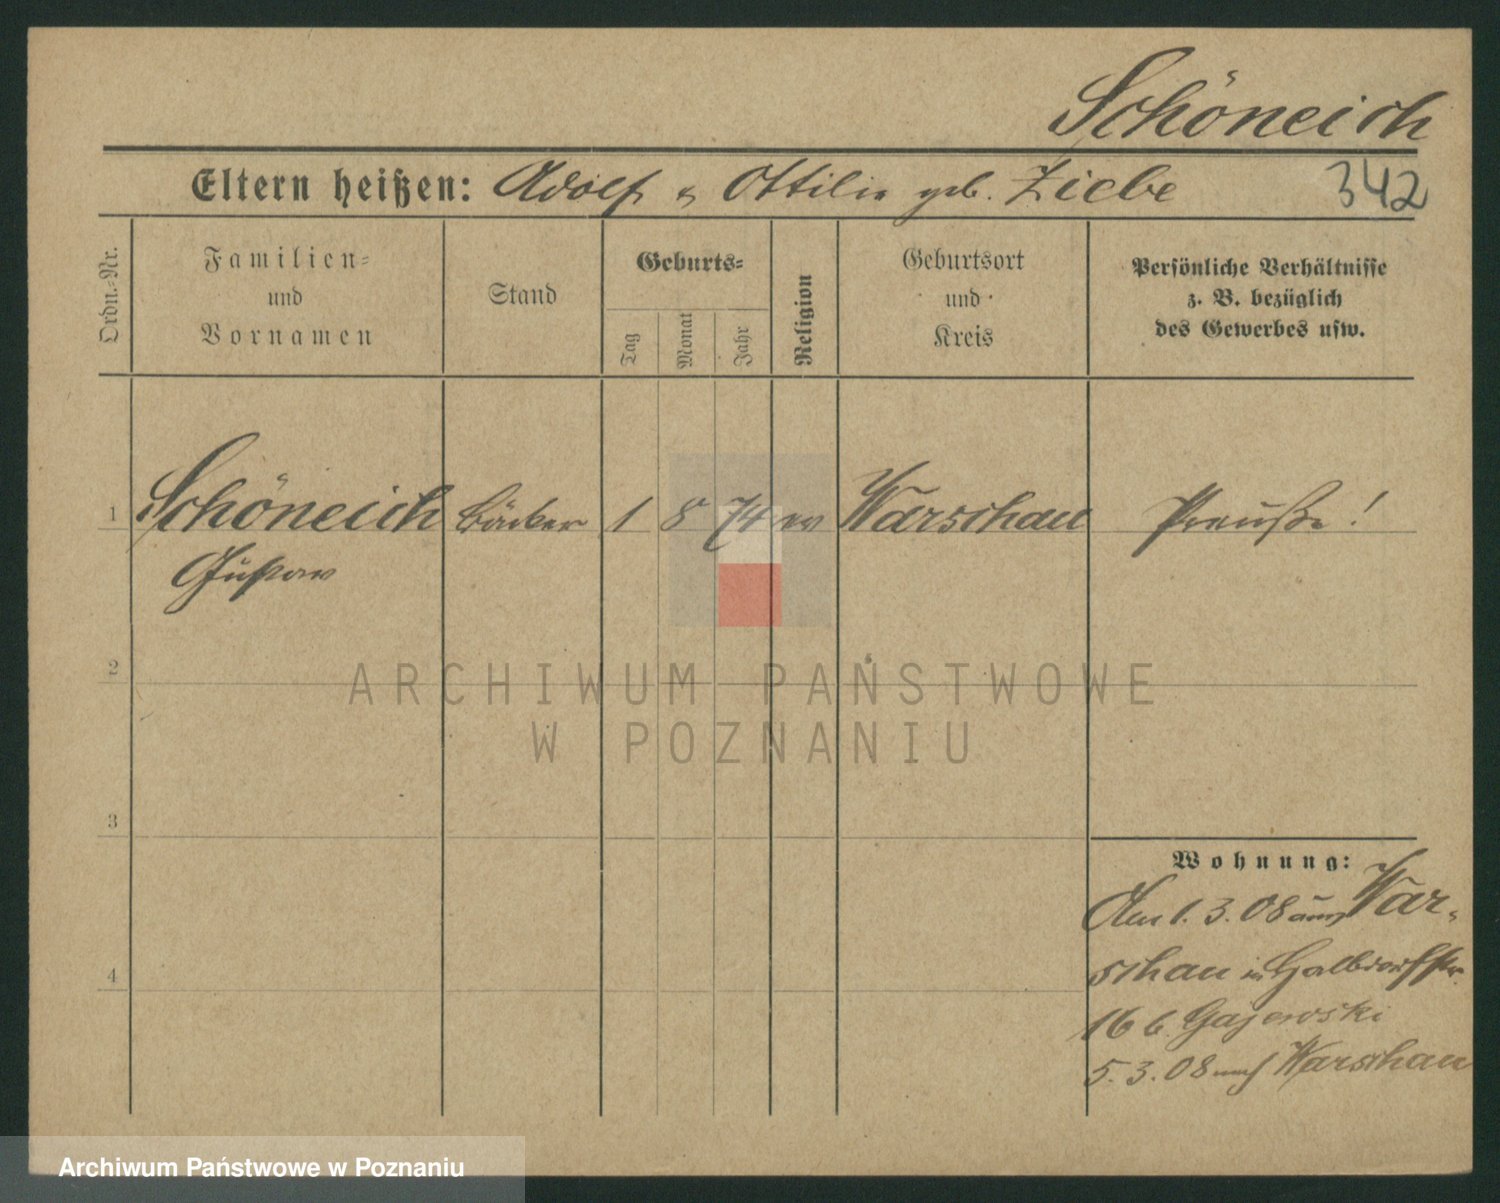 Schöneich
Eltern heißen: Adolf u Ottilie geb. Ziebe
342
Ordn.-Nr.
Familien-
und
Vornamen
Stand
Geburts-
Tag
Monat
Jahr
Religion
Geburtsort
und
Kreis
Persönliche Verhältnisse
z. B. bezüglich
des Gewerbes usw.
1 Schöneich Bäcker 1 8 74 ev Warschau Preuße!
Gustav
2
ARCHIWUM PAŃSTWOWE
W POZNANIU
3
Wohnung:
Am 1. 3. 08 aus War-
schau in Halbdorfstr.
16 b. Gajewski
4
5. 3. 08 nach Warschau
Archiwum Państwowe w Poznaniu